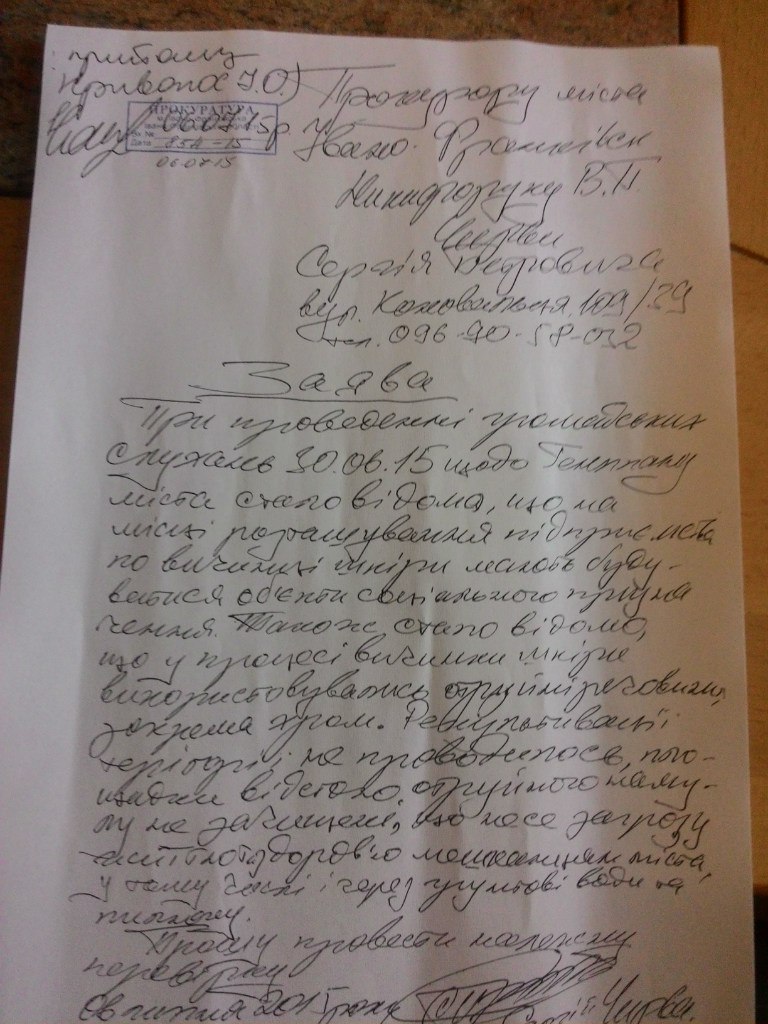 Прокурору міста
ПРОКУРАТУРА
06.07.15р Івано-Франківськ
Вх. №
Дата 85А-15
06.07.15
Никифоруку В.П.
Сергія Петровича
вул. Коновальця 109/29
тел. 096-90-58-032
Заява
При проведенні громадських
слухань 30.06.15 щодо Генплану
міста стало відомо, що на
місці розташування підприємства
по вичинці шкіри мають буду-
ватися об'єкти соціального призна
чення. Також стало відомо,
що у процесі вичинки шкіри
використовувались отруйні речовини,
зокрема хром. Рекультивації
території не проводилось, пло-
щадки відстою отруйного наму-
лу не зачищені, що несе загрозу
життю та здоров'ю мешканцям міста,
у тому числі і через ґрунтові води та
Прошу провести належну
перевірку
2015 року Сергій